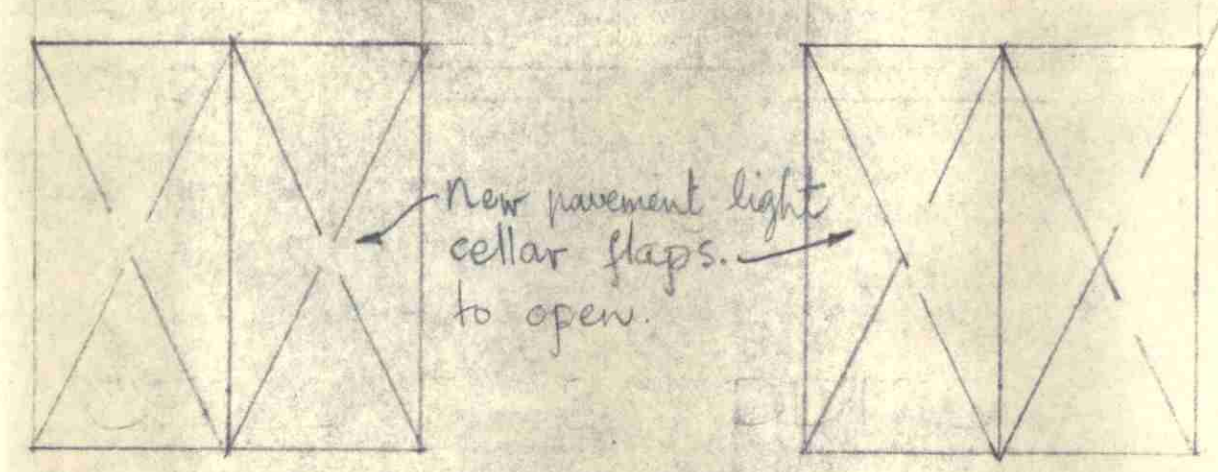 New pavement light
cellar flaps.
to open.